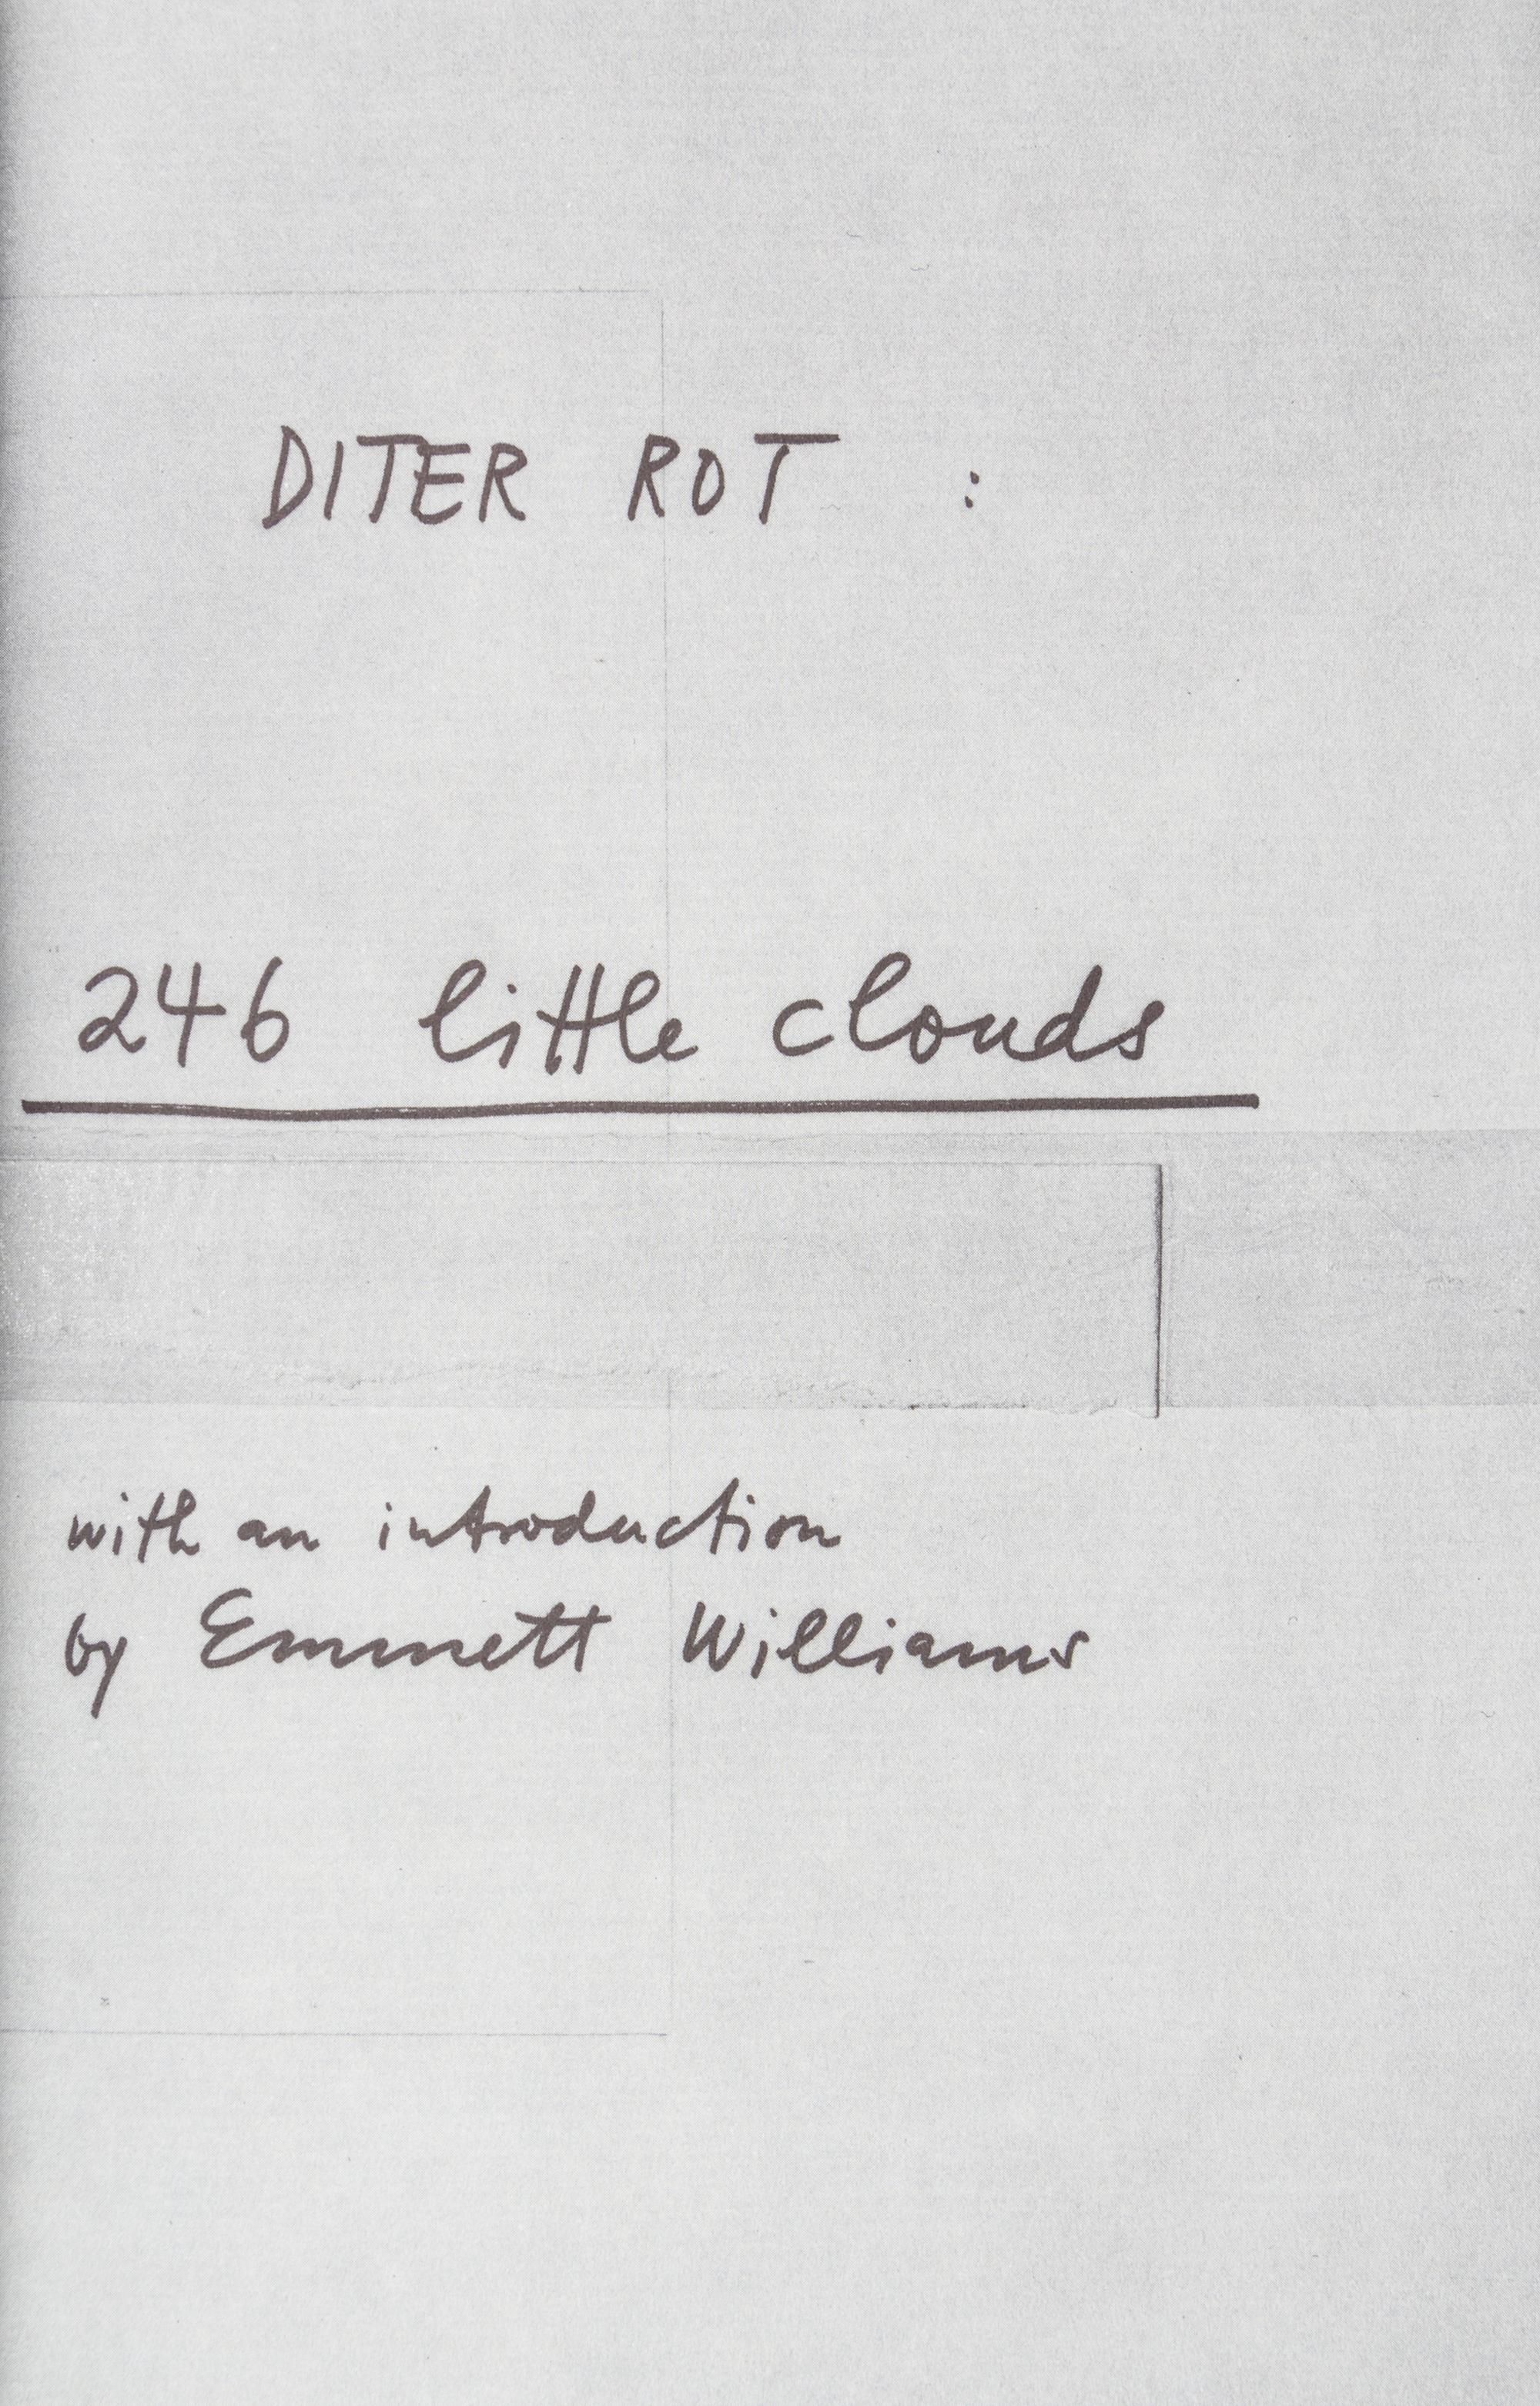 DITER ROT :
246 little clouds
with an introduction
by Emmett Williams